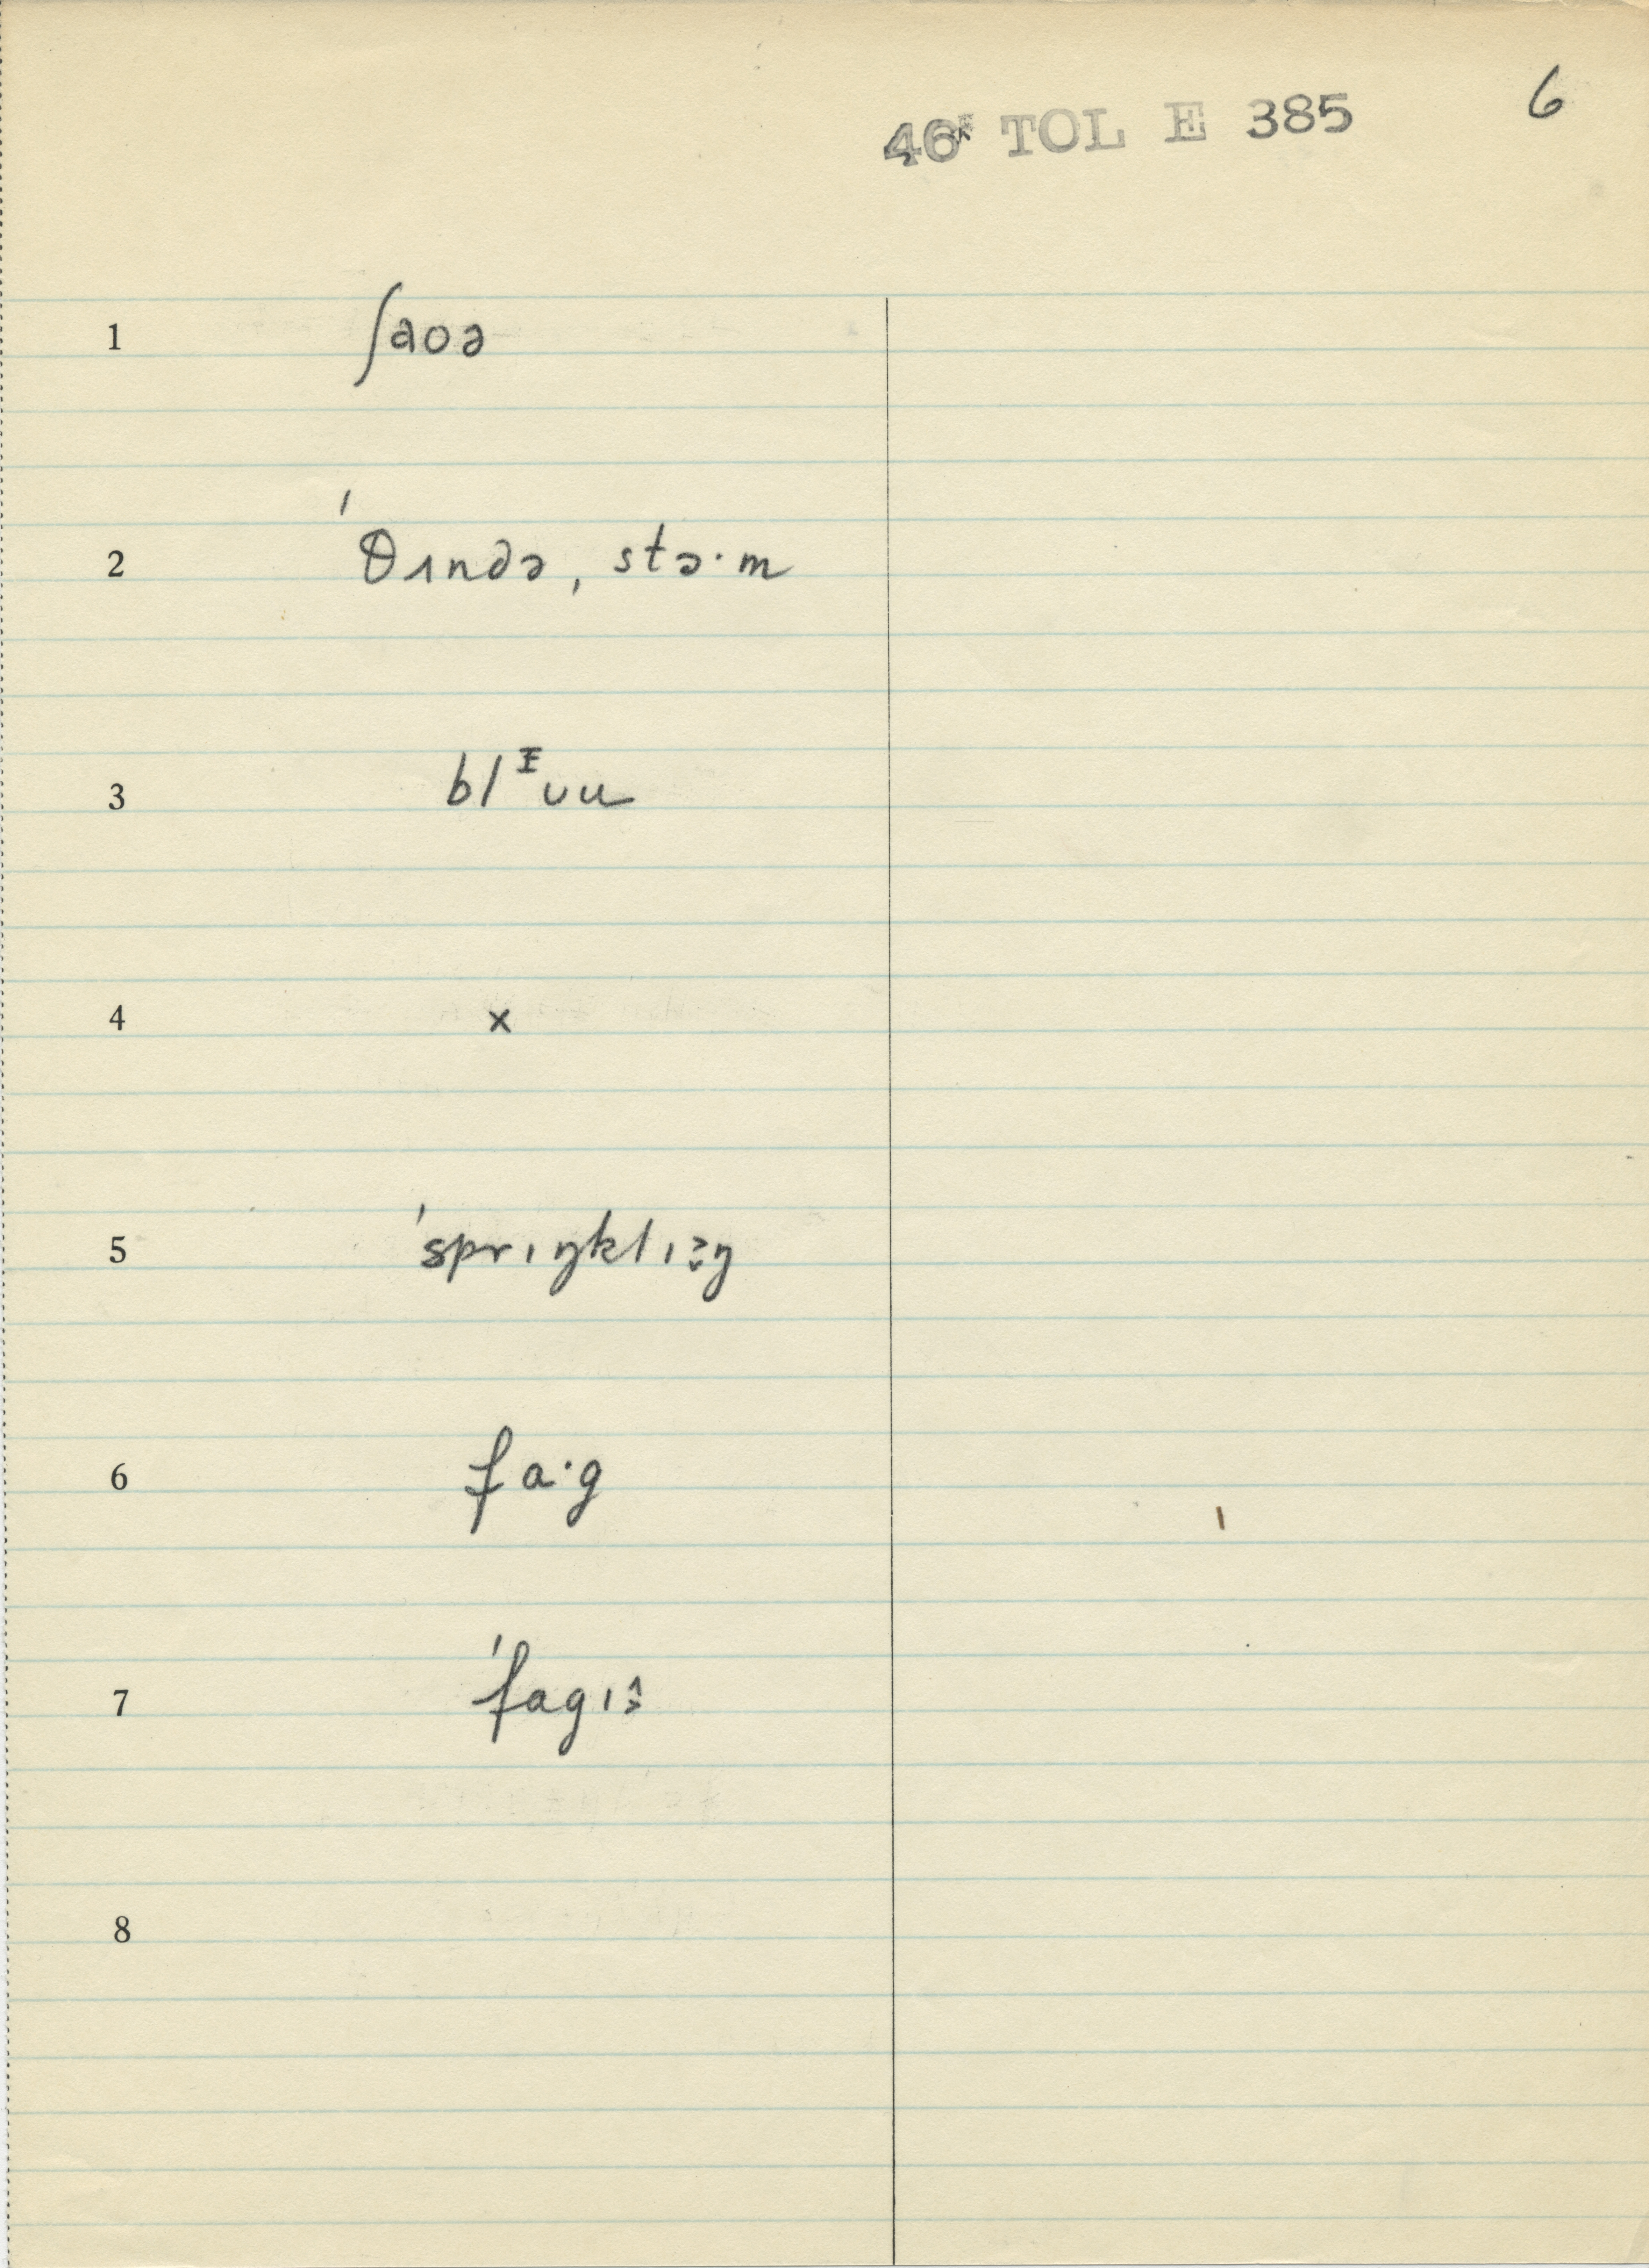 46ᴱ TOL E 385 6
1 ʃaoə
2 ˈθʌndə, stɔ·m
3 blᵻʋu
4 x
5 ˈsprɪŋklɪŋ
6 fa·g
7 ˈfagɪ
8